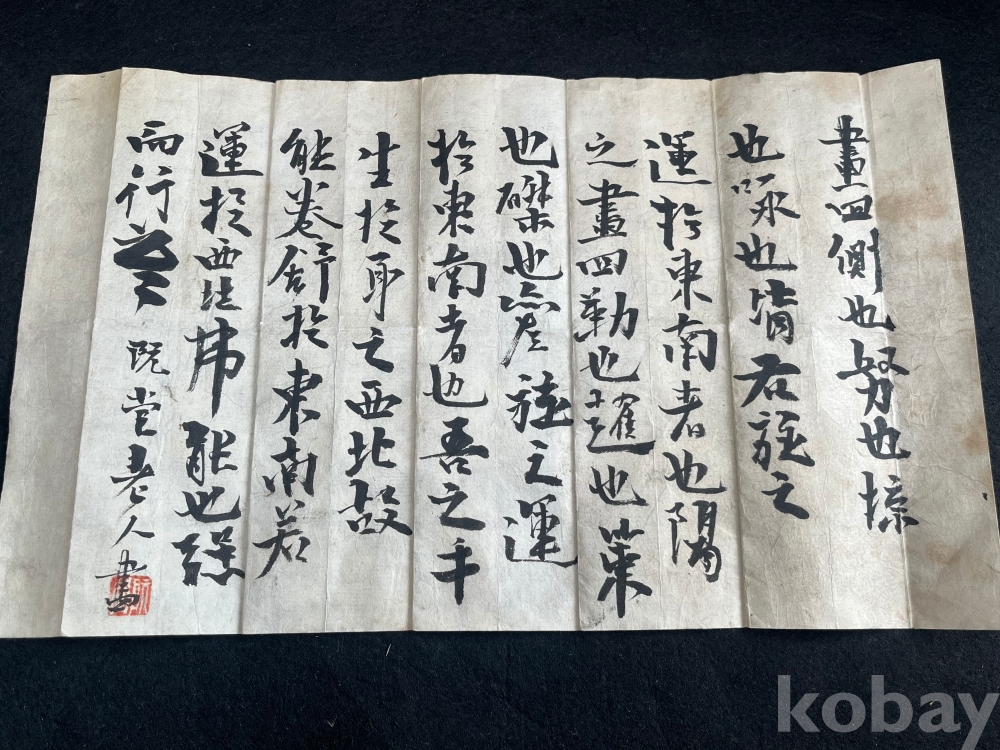 畫四側也努也掠
也啄也皆右旋之
運於東南者也隅
之畫四勒也趯也策
也磔也皆左旋之運
於東南者也吾之手
生於身之西北故
能卷舒於東南若
運於西北弗能也強
而行 阮堂老人書
kobay